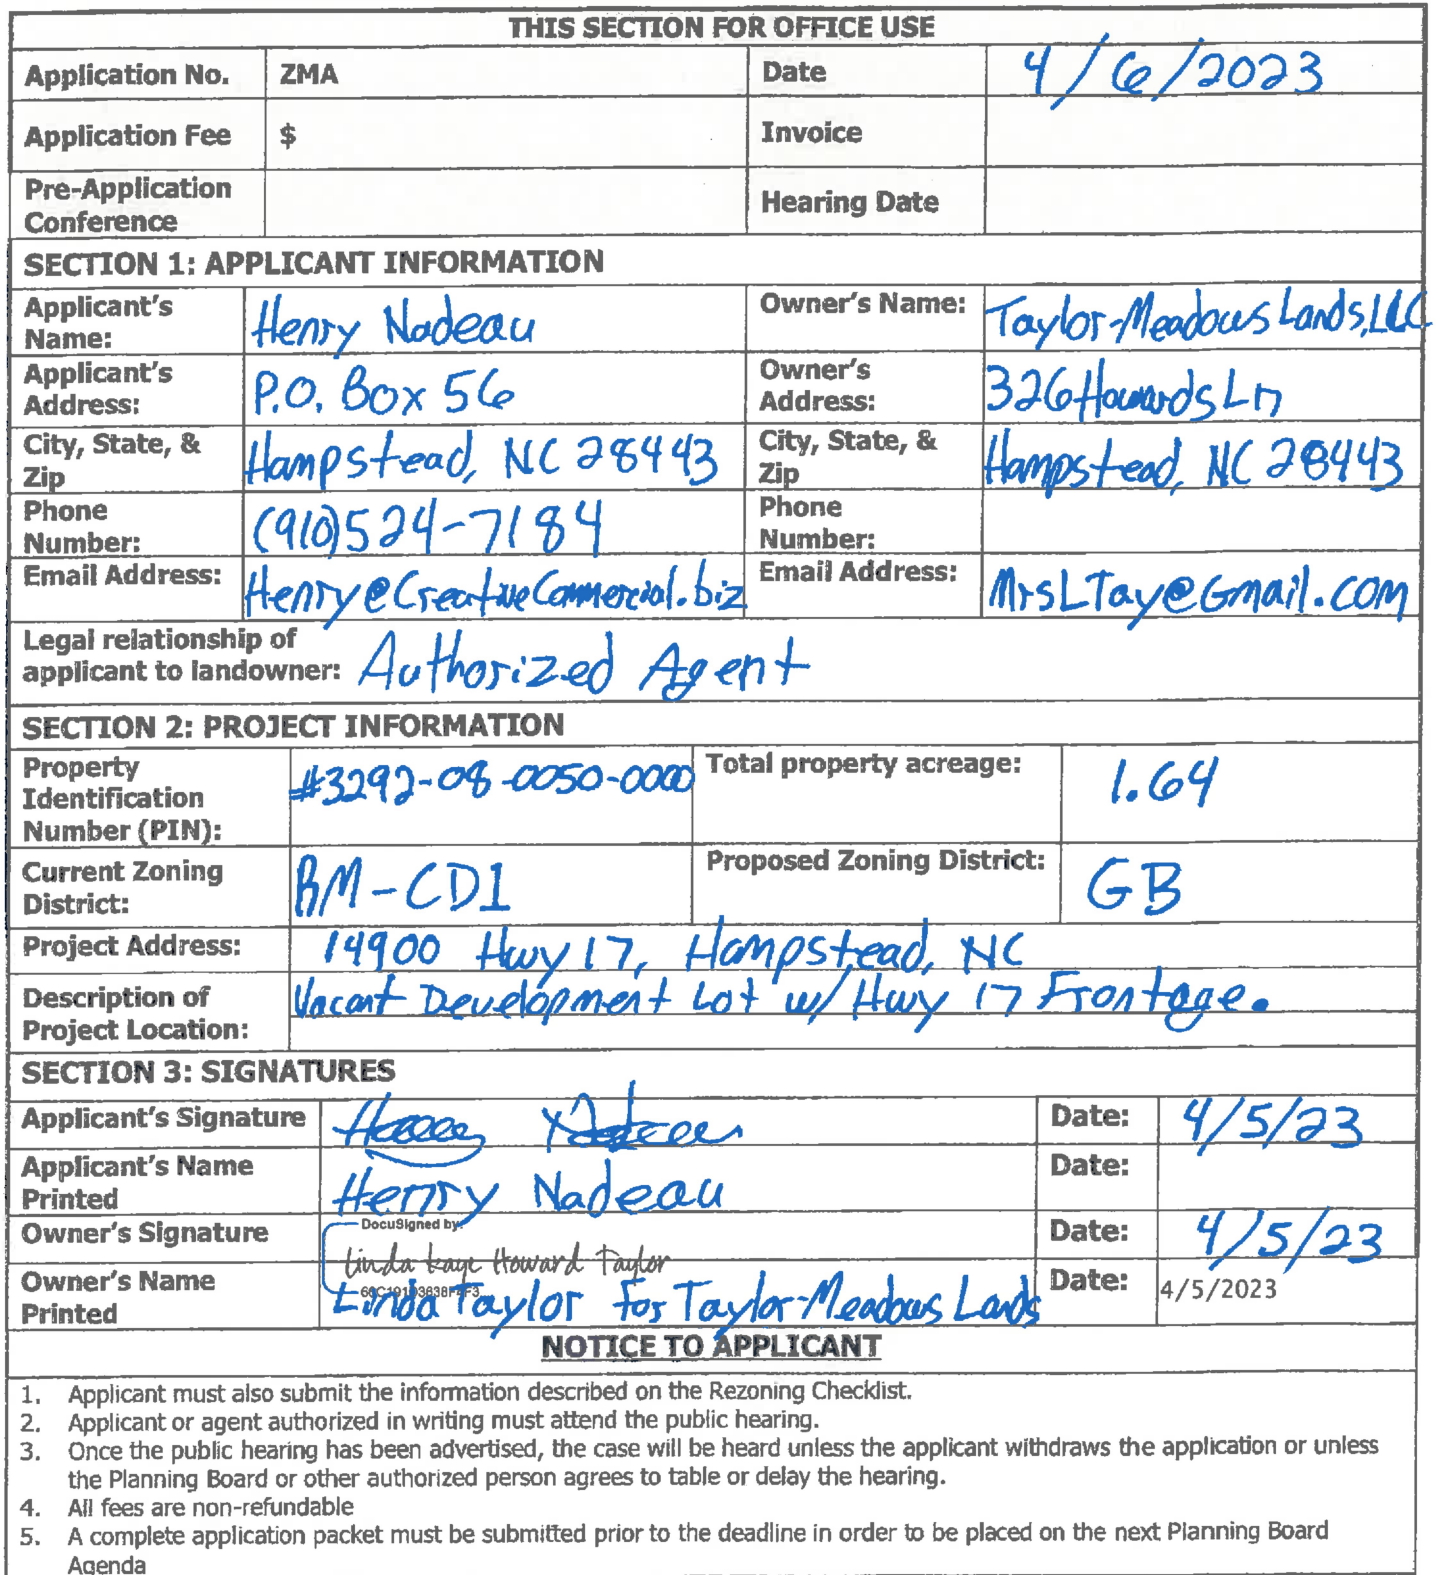 THIS SECTION FOR OFFICE USE
Application No. ZMA Date 4/6/2023
Application Fee $ Invoice
Pre-Application
Conference Hearing Date
SECTION 1: APPLICANT INFORMATION
Applicant's
Name: Henry Nadeau Owner's Name: Taylor-Meadows Lands, LLC
Applicant's
Address: P.O. Box 56 Owner's
Address: 326 Howards Ln
City, State, &
Zip Hampstead, NC 28443 City, State, &
Zip Hampstead, NC 28443
Phone
Number: (910)524-7184 Phone
Number:
Email Address: Henry@CreativeCommercial.biz Email Address: MrsLTay@Gmail.com
Legal relationship of
applicant to landowner: Authorized Agent
SECTION 2: PROJECT INFORMATION
Property
Identification
Number (PIN): #3292-08-0050-0000 Total property acreage: 1.64
Current Zoning
District: RM-CD1 Proposed Zoning District: GB
Project Address: 14900 Hwy 17, Hampstead, NC
Description of
Project Location: Vacant Development Lot w/ Hwy 17 Frontage.
SECTION 3: SIGNATURES
Applicant's Signature Henry Nadeau Date: 4/5/23
Applicant's Name
Printed Henry Nadeau Date:
Owner's Signature DocuSigned by:
Linda Kaye Howard Taylor Date: 4/5/23
Owner's Name
Printed Linda Taylor for Taylor-Meadows Lands Date: 4/5/2023
NOTICE TO APPLICANT
1. Applicant must also submit the information described on the Rezoning Checklist.
2. Applicant or agent authorized in writing must attend the public hearing.
3. Once the public hearing has been advertised, the case will be heard unless the applicant withdraws the application or unless
the Planning Board or other authorized person agrees to table or delay the hearing.
4. All fees are non-refundable
5. A complete application packet must be submitted prior to the deadline in order to be placed on the next Planning Board
Agenda